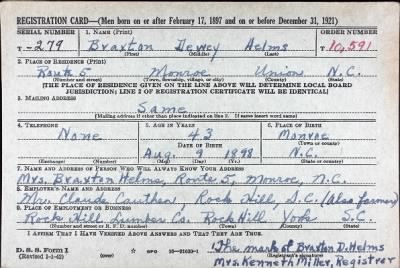 REGISTRATION CARD—(Men born on or after February 17, 1897 and on or before December 31, 1921)
SERIAL NUMBER 1. NAME (Print) ORDER NUMBER
T-279 Braxton Dewey Helms T 10,591
(First) (Middle) (Last)
2. PLACE OF RESIDENCE (Print)
Route 5 Monroe Union N.C.
(Number and street) (Town, township, village, or city) (County) (State)
[THE PLACE OF RESIDENCE GIVEN ON THE LINE ABOVE WILL DETERMINE LOCAL BOARD
JURISDICTION; LINE 2 OF REGISTRATION CERTIFICATE WILL BE IDENTICAL]
3. MAILING ADDRESS
Same
[Mailing address if other than place indicated on line 2. If same insert word same]
4. TELEPHONE 5. AGE IN YEARS 6. PLACE OF BIRTH
None 43 Monroe
DATE OF BIRTH (Town or county)
Aug. 9 1898 N.C.
(Exchange) (Number) (Mo.) (Day) (Yr.) (State or country)
7. NAME AND ADDRESS OF PERSON WHO WILL ALWAYS KNOW YOUR ADDRESS
Mrs. Braxton Helms, Route 5, Monroe, N.C.
8. EMPLOYER'S NAME AND ADDRESS
Mr. Claude Rock Hill, S.C. (Also farmer)
9. PLACE OF EMPLOYMENT OR BUSINESS
Rock Hill Lumber Co. Rock Hill York S.C.
(Number and street or R. F. D. number) (Town) (County) (State)
I AFFIRM THAT I HAVE VERIFIED ABOVE ANSWERS AND THAT THEY ARE TRUE.
D. S. S. Form 1 The mark of Braxton D. Helms
(Revised 1-1-42) GPO 16-21630-1 Mrs. Kenneth Miller, Registrar